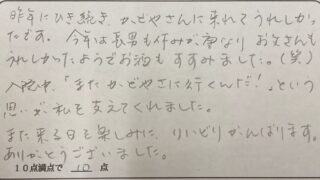 昨年にひき続き、かどやさんに来れてうれしかっ
たです。今年は長男も休みが重なり お父さんも
うれしかったようでお酒もすすみました。(笑)
入院中、「またかどやさんに行くんだ!」という
思いが私を支えてくれました。
また来る日を楽しみに、リハビリがんばります。
ありがとうございました。
10点満点で 10 点